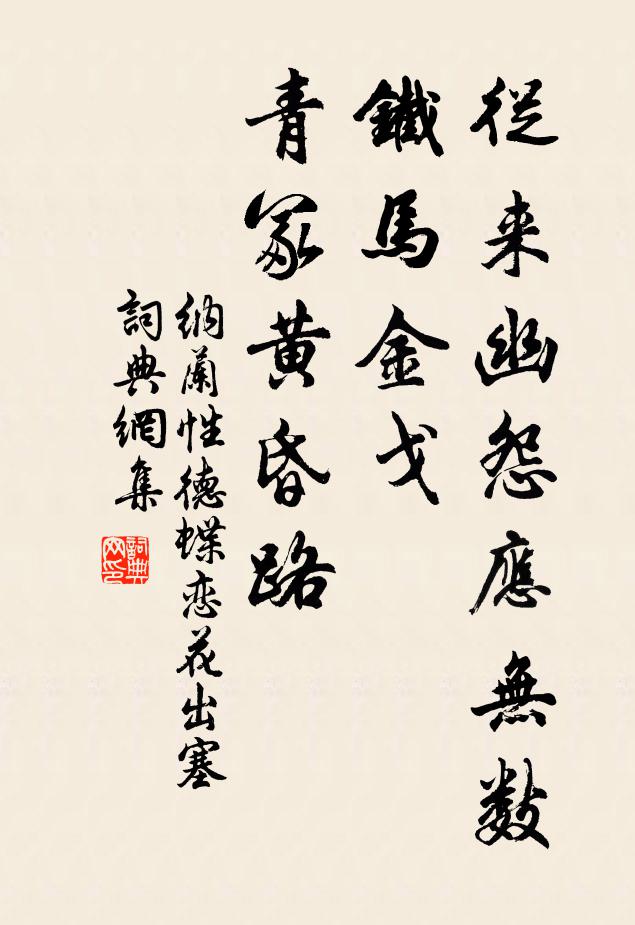 從来幽怨應無數
鐵馬金戈
青冢黄昏路
纳蘭性德蝶恋花出塞
詞典網集
詞典
网印